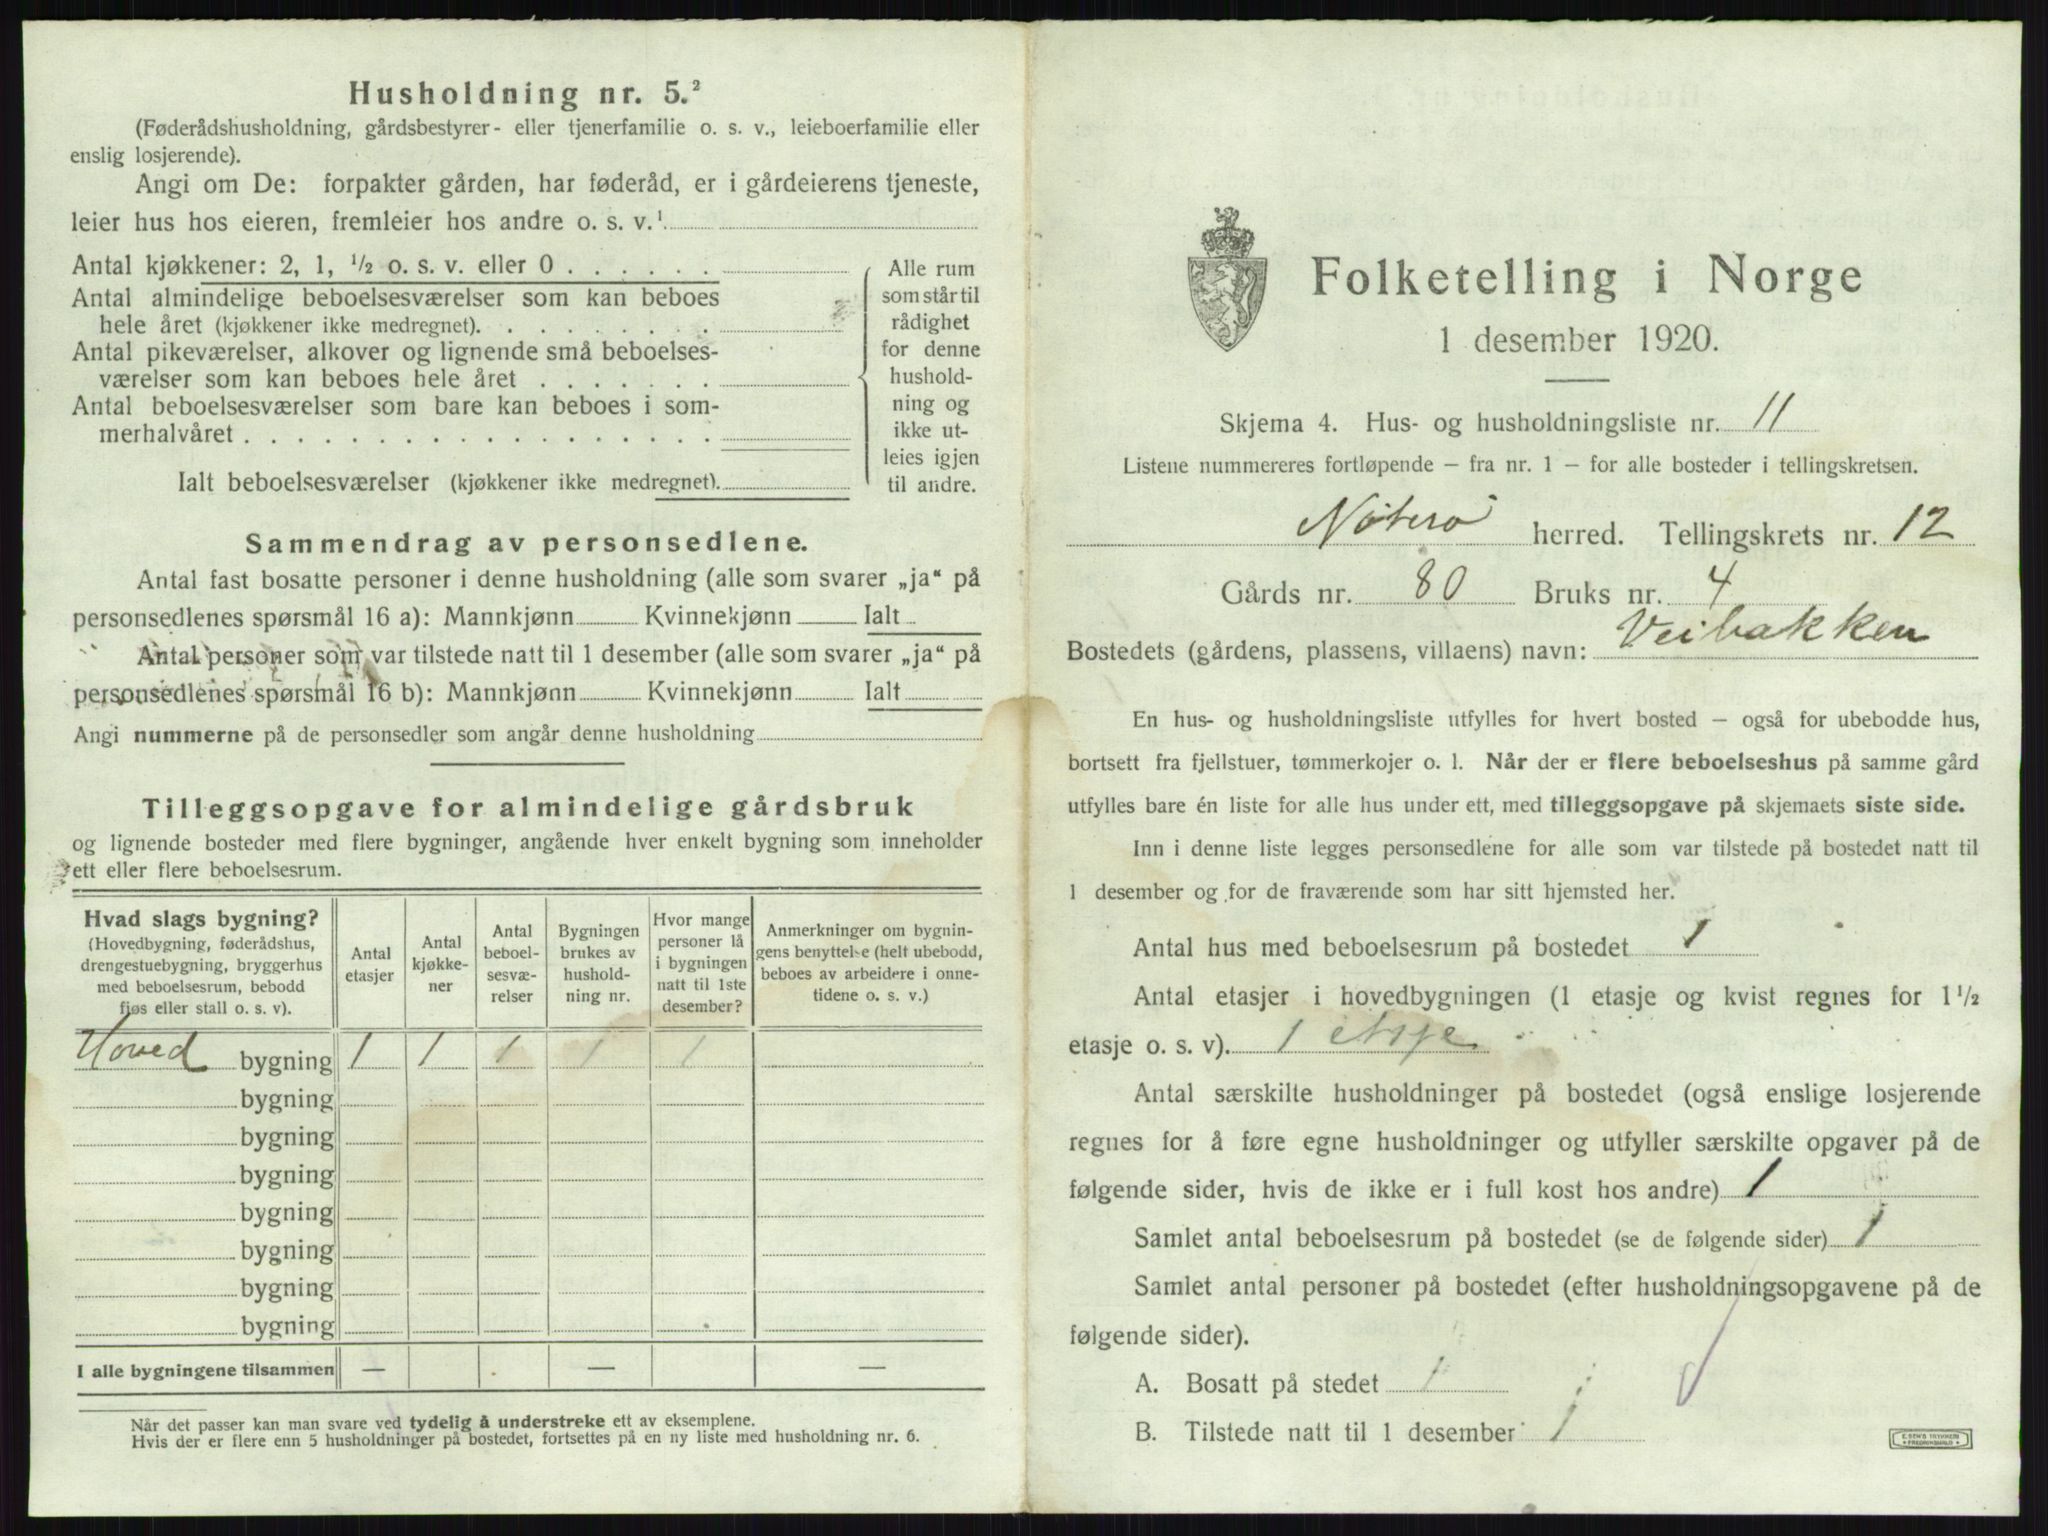 Husholdning nr. 5.²
(Føderådshusholdning, gårdsbestyrer- eller tjenerfamilie o. s. v., leieboerfamilie eller
enslig losjerende).
Angi om De: forpakter gården, har føderåd, er i gårdeierens tjeneste,
leier hus hos eieren, fremleier hos andre o. s. v.¹
Antal kjøkkener: 2, 1, ½ o. s. v. eller 0 . . . . . .
Antal almindelige beboelsesværelser som kan beboes
hele året (kjøkkener ikke medregnet). . . . . . . . .
Antal pikeværelser, alkover og lignende små beboelses-
værelser som kan beboes hele året . . . . . . .
Antal beboelsesværelser som bare kan beboes i som-
merhalvåret . . . . . . . . . . . . . . . . . .
Ialt beboelsesværelser (kjøkkener ikke medregnet).
Alle rum
som står til
rådighet
for denne
hushold-
ning og
ikke ut-
leies igjen
til andre.
Sammendrag av personsedlene.
Antal fast bosatte personer i denne husholdning (alle som svarer „ja“ på
personsedlenes spørsmål 16 a): Mannkjønn Kvinnekjønn Ialt
Antal personer som var tilstede natt til 1 desember (alle som svarer „ja“ på
personsedlenes spørsmål 16 b): Mannkjønn Kvinnekjønn Ialt
Angi nummerne på de personsedler som angår denne husholdning
Tilleggsopgave for almindelige gårdsbruk
og lignende bosteder med flere bygninger, angående hver enkelt bygning som inneholder
ett eller flere beboelsesrum.
Hvad slags bygning?
(Hovedbygning, føderådshus,
drengestuebygning, bryggerhus
med beboelsesrum, bebodd
fjøs eller stall o. s. v).
Antal
etasjer
Antal
kjøkke-
ner
Antal
beboel-
sesvæ-
relser
Bygningen
brukes av
hushold-
ning nr.
Hvor mange
personer lå
i bygningen
natt til 1ste
desember?
Anmerkninger om bygnin-
gens benyttelse (helt ubebodd,
beboes av arbeidere i onne-
tidene o. s. v.)
Hoved bygning 1 1 1 1 1
bygning
bygning
bygning
bygning
bygning
bygning
bygning
I alle bygningene tilsammen — — —
Når det passer kan man svare ved tydelig å understreke ett av eksemplene.
Hvis der er flere enn 5 husholdninger på bostedet, fortsettes på en ny liste med husholdning nr. 6.
Folketelling i Norge
1 desember 1920.
Skjema 4. Hus- og husholdningsliste nr. 11
Listene nummereres fortløpende – fra nr. 1 – for alle bosteder i tellingskretsen.
Nøterø herred. Tellingskrets nr. 12
Gårds nr. 80 Bruks nr. 4
Bostedets (gårdens, plassens, villaens) navn: Veibakken
En hus- og husholdningsliste utfylles for hvert bosted – også for ubebodde hus,
bortsett fra fjellstuer, tømmerkojer o. l. Når der er flere beboelseshus på samme gård
utfylles bare én liste for alle hus under ett, med tilleggsopgave på skjemaets siste side.
Inn i denne liste legges personsedlene for alle som var tilstede på bostedet natt til
1 desember og for de fraværende som har sitt hjemsted her.
Antal hus med beboelsesrum på bostedet 1
Antal etasjer i hovedbygningen (1 etasje og kvist regnes for 1½
etasje o. s. v). 1 etasje
Antal særskilte husholdninger på bostedet (også enslige losjerende
regnes for å føre egne husholdninger og utfyller særskilte opgaver på de
følgende sider, hvis de ikke er i full kost hos andre) 1
Samlet antal beboelsesrum på bostedet (se de følgende sider) 1
Samlet antal personer på bostedet (efter husholdningsopgavene på de
følgende sider).
A. Bosatt på stedet 1
B. Tilstede natt til 1 desember 1